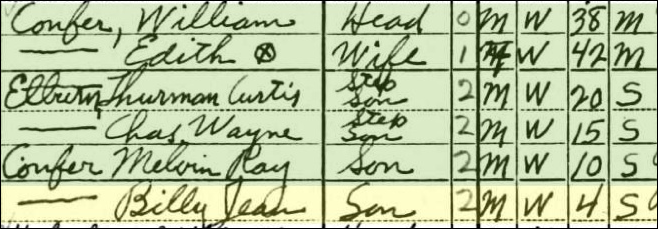 Confer, William Head 0 M W 38 M
— Edith ⓧ Wife 1 F W 42 M
Elburn, Thurman Curtis Step Son 2 M W 20 S
— Chas Wayne Step Son 2 M W 15 S
Confer Melvin Ray Son 2 M W 10 S
— Billy Jean Son 2 M W 4 S